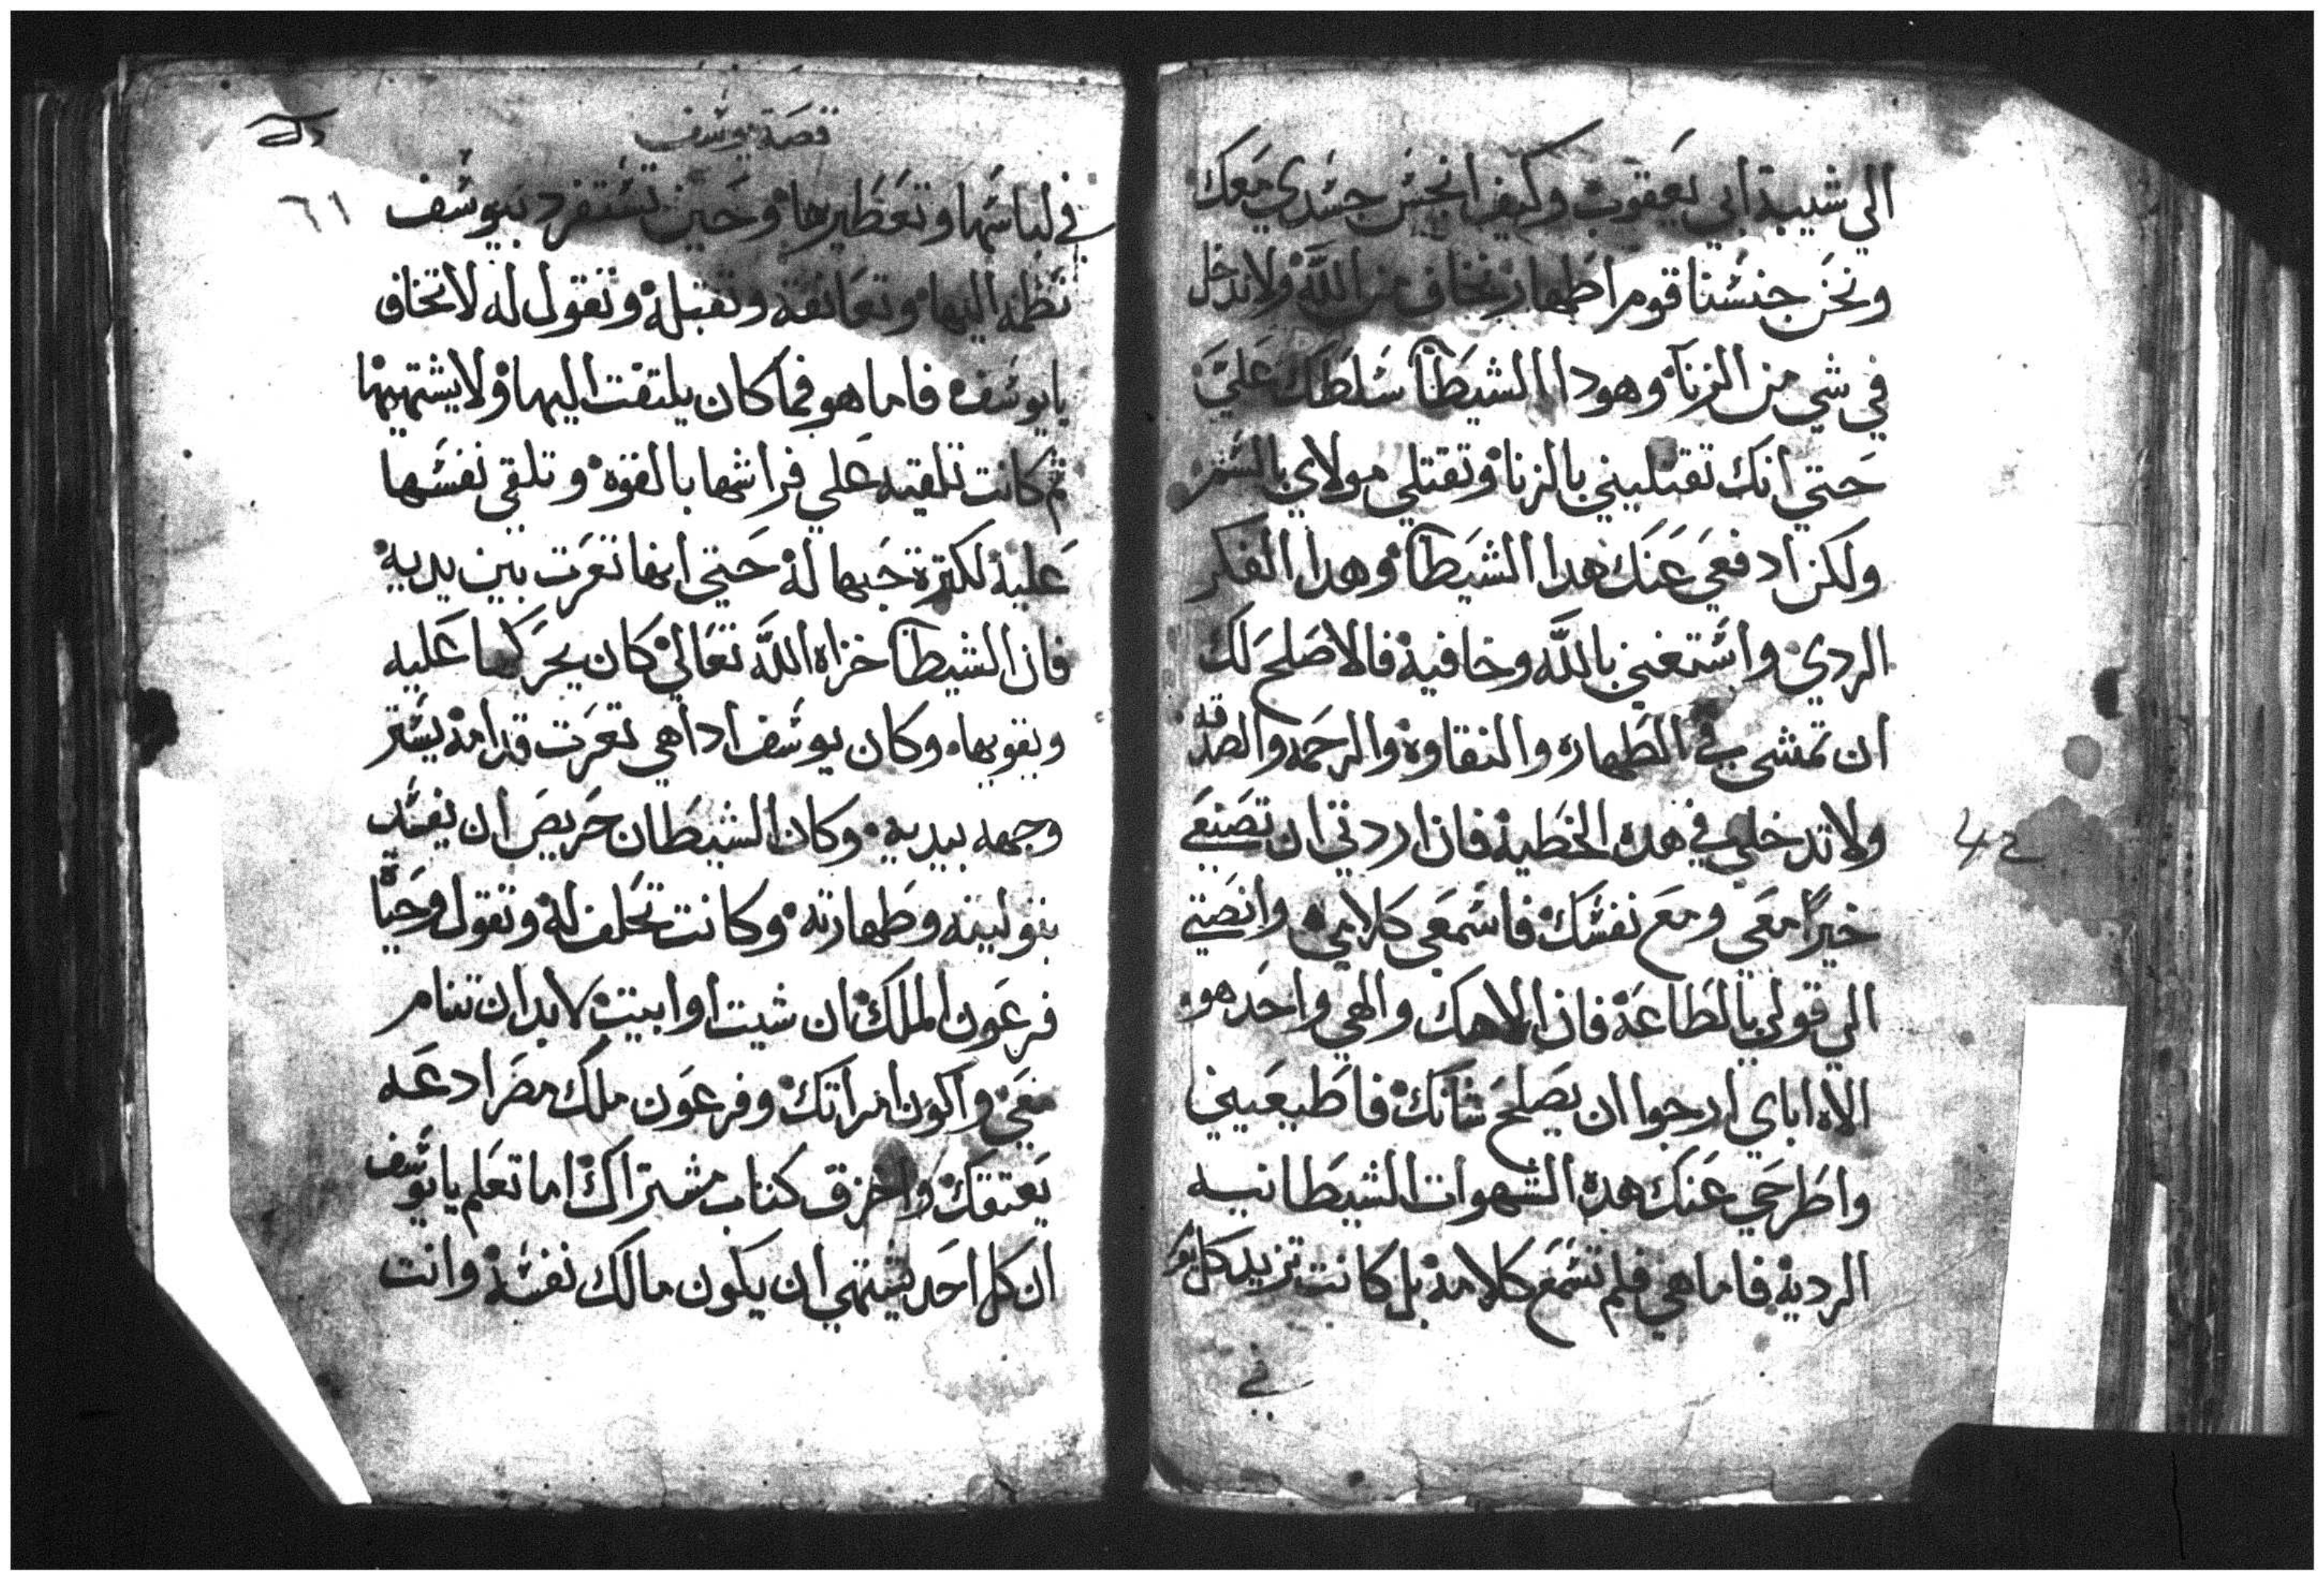 الي شيبة ابي يعقوب وكيف انجس جسدي معك
ونحن جنسنا قوم اطهار نخاف من الله ولا ندخل
في شي من الزنا وهودا الشيطان سلطك علي
حتي انك تقتليني بالزنا وتقتلي مولاي بالسم
ولكن ادفعي عنك هدا الشيطان وهدا الفكر
الردي واستغني بالله وخافيه فالاصلح لك
ان تمشي في الطهاره والنقاوه والرحمه والصدقه
ولا تدخلي في هده الخطيه فان اردتي ان تصنعي
خيرًا معي ومع نفسك فاسمعي كلامي وانصتي
الي قولي بالطاعة فان الاهك والهي واحد هو
الاه اباي ارجوا ان يصلح شانك فاطيعيني
واطرحي عنك هده الشهوات الشيطانيه
الرديه فاما هي فلم تسمع كلامه بل كانت تزيد كل يوم
في
قصة يوسف
٦١
في لباسها وتعطيرها وحين تستفرد بيوسف
تظمه اليها وتعانقه وتقبله وتقول له لا تخاف
يا يوسف فاما هو فما كان يلتفت اليها ولا يشتهيها
ثم كانت تلقيه علي فراشها بالقوه وتلقي نفسها
عليه لكترة حبها له حتي انها تعرت بين يديه
فان الشيطان خزاه الله تعالي كان يحركها عليه
ويقويها وكان يوسف ادا هي تعرت قدامه يستر
وجهه بيديه وكان الشيطان حريص ان يفسد
بتوليته وطهارته وكانت تحلف له وتقول وحياة
فرعون الملك ان شيت او ابيت لابد ان تنام
معي واكون امراتك وفرعون ملك مصر ادعه
يعتقك واخرق كتاب مشتراك اما تعلم يا يوسف
ان كل احد يشتهي ان يكون مالك نفسه وانت